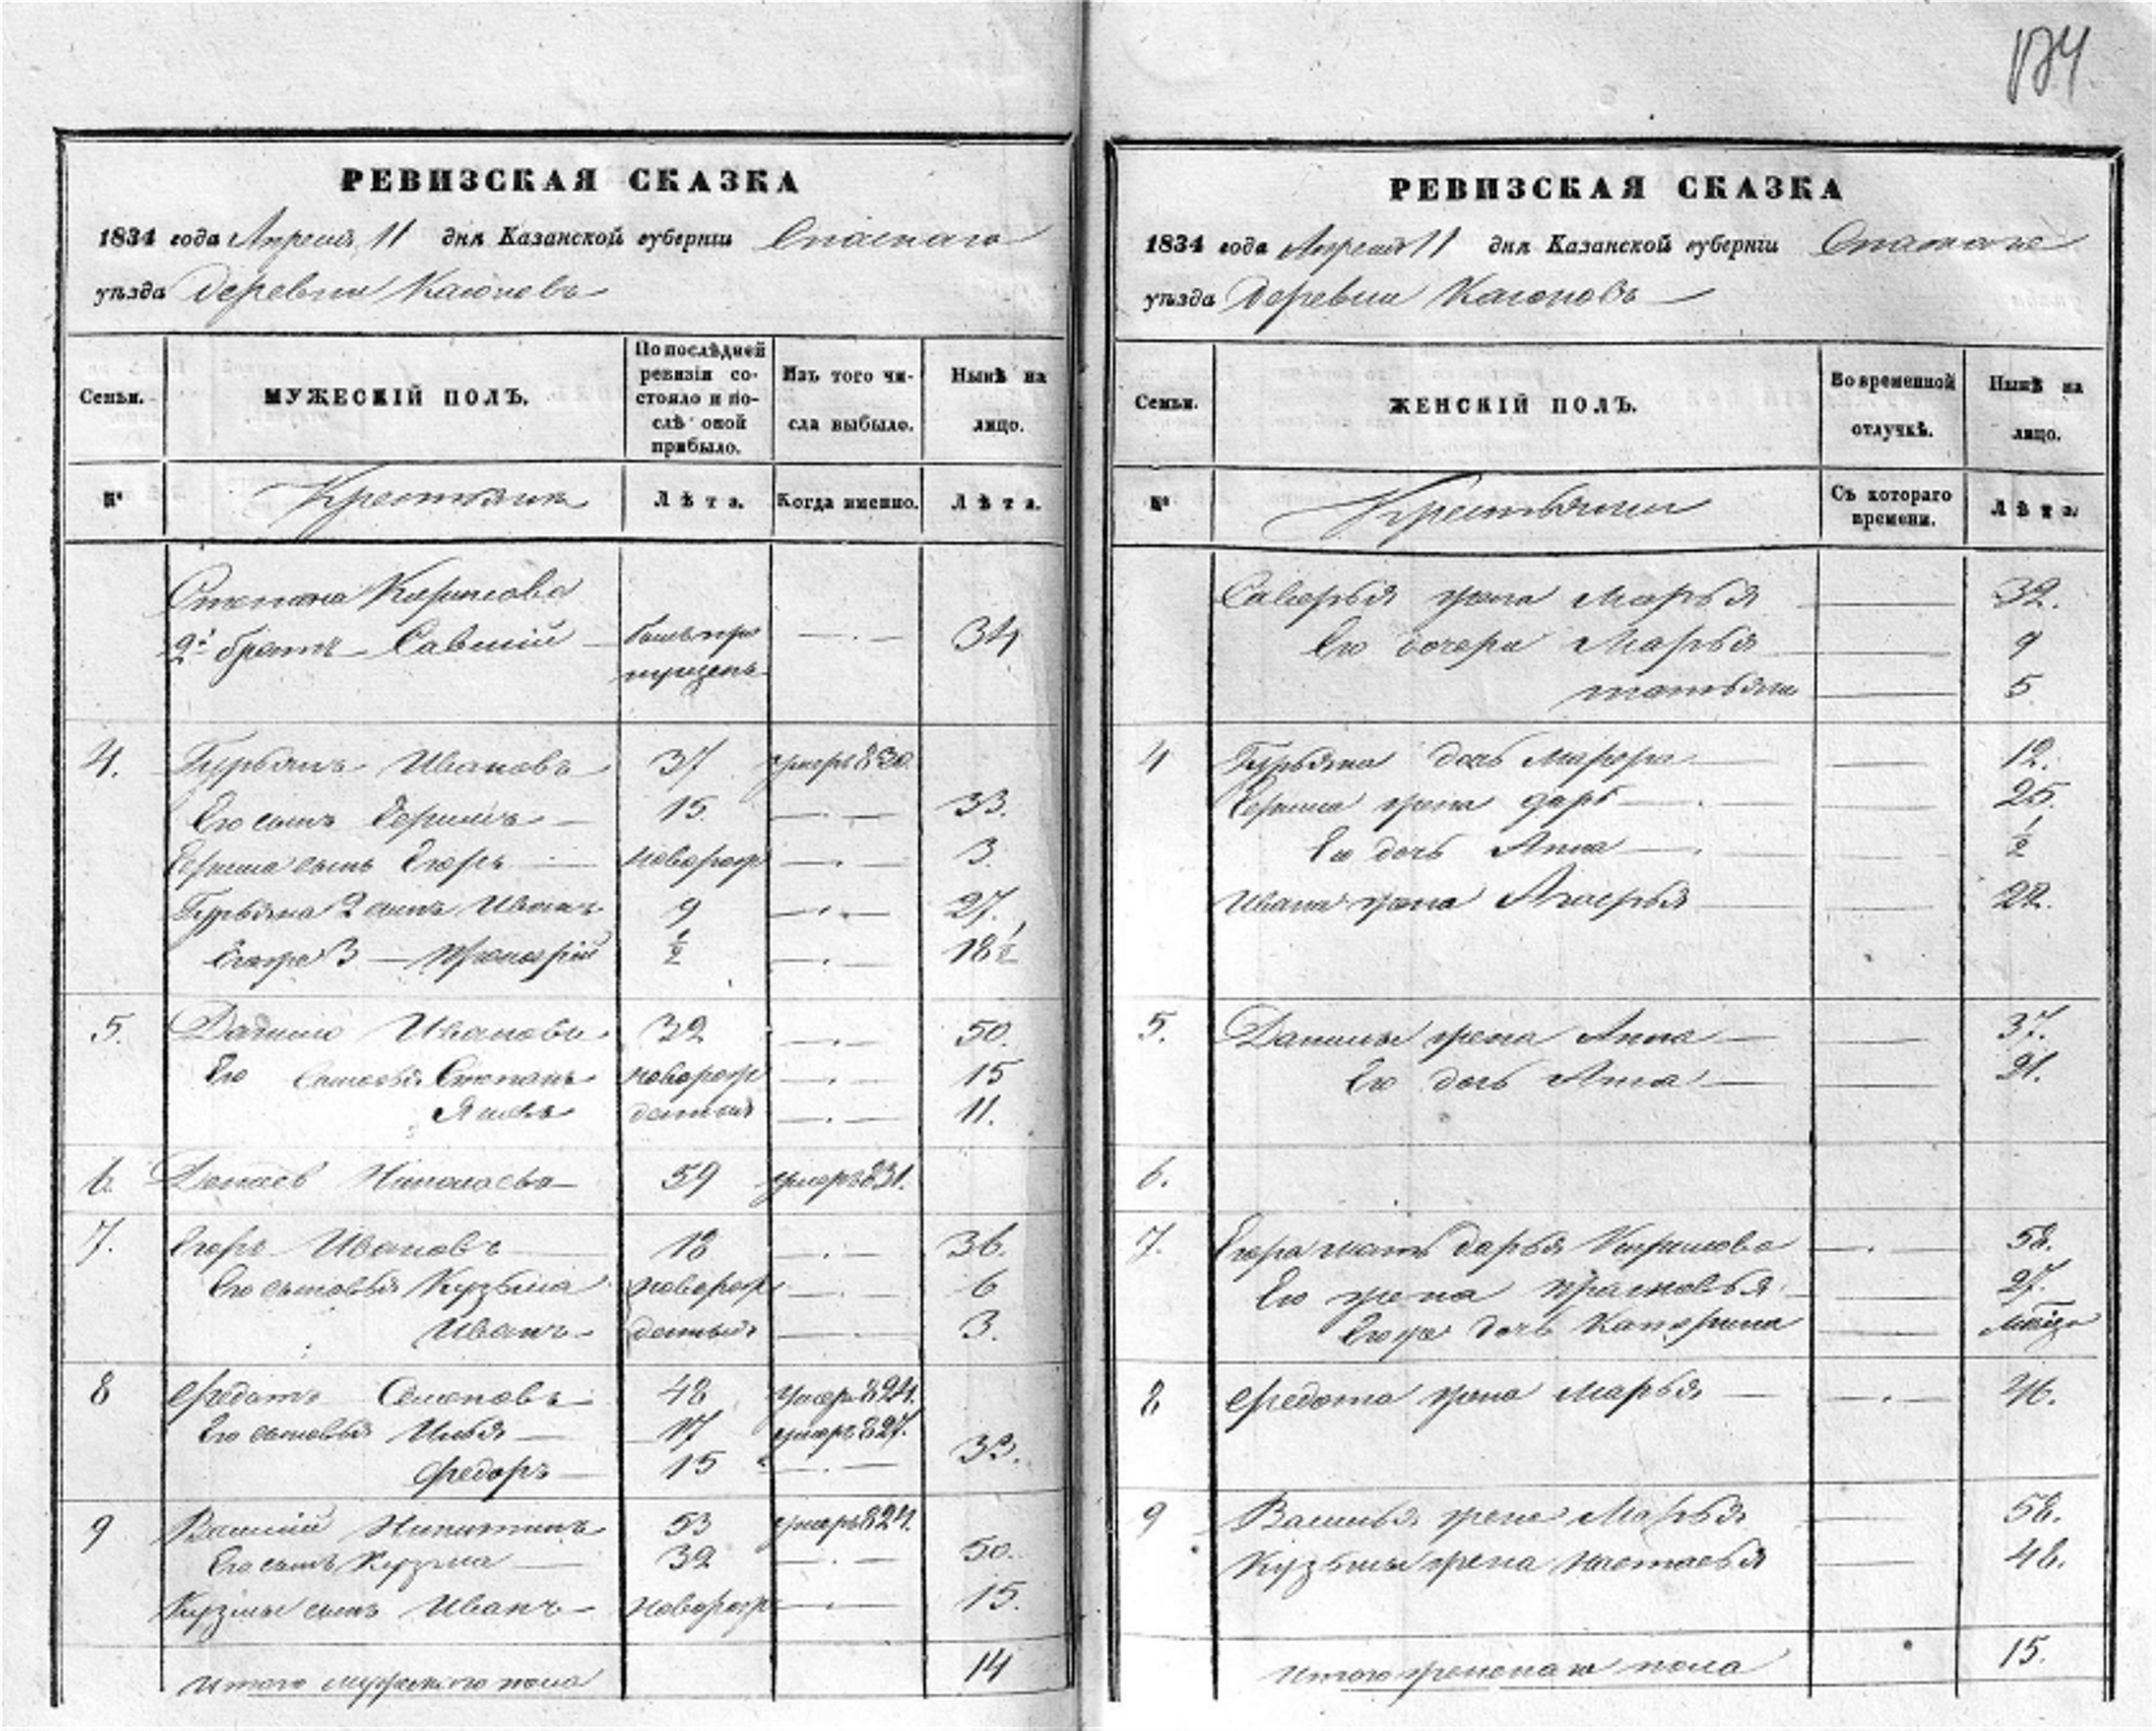 184
РЕВИЗСКАЯ СКАЗКА
1834 года Апреля 11 дня Казанской губерніи Спаскаго
уѣзда деревни Каюковъ
Семьи.
МУЖЕСКІЙ ПОЛЪ.
По послѣдней ревизіи состояло и послѣ оной прибыло.
Изъ того числа выбыло.
Нынѣ на лицо.
№
Крестьянъ
Лѣта.
Когда именно.
Лѣта.
Степана Кирилова
2й братъ Савелій 34
4. Гурьянъ Ивановъ 37 умеръ 830.
Его сынъ Ефримъ 15. 33.
Ефрима сынъ Егоръ новорож 3.
Гурьяна 2 сынъ Иванъ 9 27.
Егоже 3 ½ 18½
5. Данило Ивановъ 32 50.
Его сыновья Степанъ новорож 15
Яковъ денныя 11.
6. Николаевъ 59 умеръ 831.
7. Егоръ Ивановъ 18 36.
Его сыновья Кузьма новорож 6
Иванъ денныя 3.
8 Федотъ Семеновъ 48 умеръ 824.
Его сыновья Илья 17 умеръ 827.
Федоръ 15 33.
9 Василій Никитинъ 53 умеръ 824.
Его сынъ Кузма 32 50.
Кузмы сынъ Иванъ новорож 15.
Итого мужеского пола 14
РЕВИЗСКАЯ СКАЗКА
1834 года Апреля 11 дня Казанской губерніи Спаскаго
уѣзда деревни Каюковъ
Семьи.
ЖЕНСКІЙ ПОЛЪ.
Во временной отлучкѣ.
Нынѣ на лицо.
№
Крестьянки
Съ котораго времени.
Лѣта.
Савелья жена Марья 32.
Ево дочери Марья 9
татьяна 5
4 Гурьяна дочь Марфа 12.
Ефрима жена 25.
Ево дочь Анна ½
Ивана жена 22.
5. Данилы жена Анна 37.
Ево дочь Анна 21.
6.
7. Егора мать дарья Кирилова 58.
Ево жена Прасковья 27.
Егоже дочь Катерина
8 Федота жена Марья 46.
9 Василья жена Марья 58.
Кузьмы жена Настасья 48.
Итого женскаго пола 15.